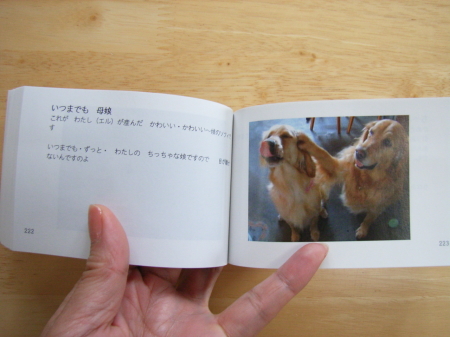 いつまでも 母娘
これが わたし(エル)が産んだ かわいい・かわいい一
す
いつまでも・ずっと・ わたしの ちっちゃな娘ですので
ないんですのよ
222
223